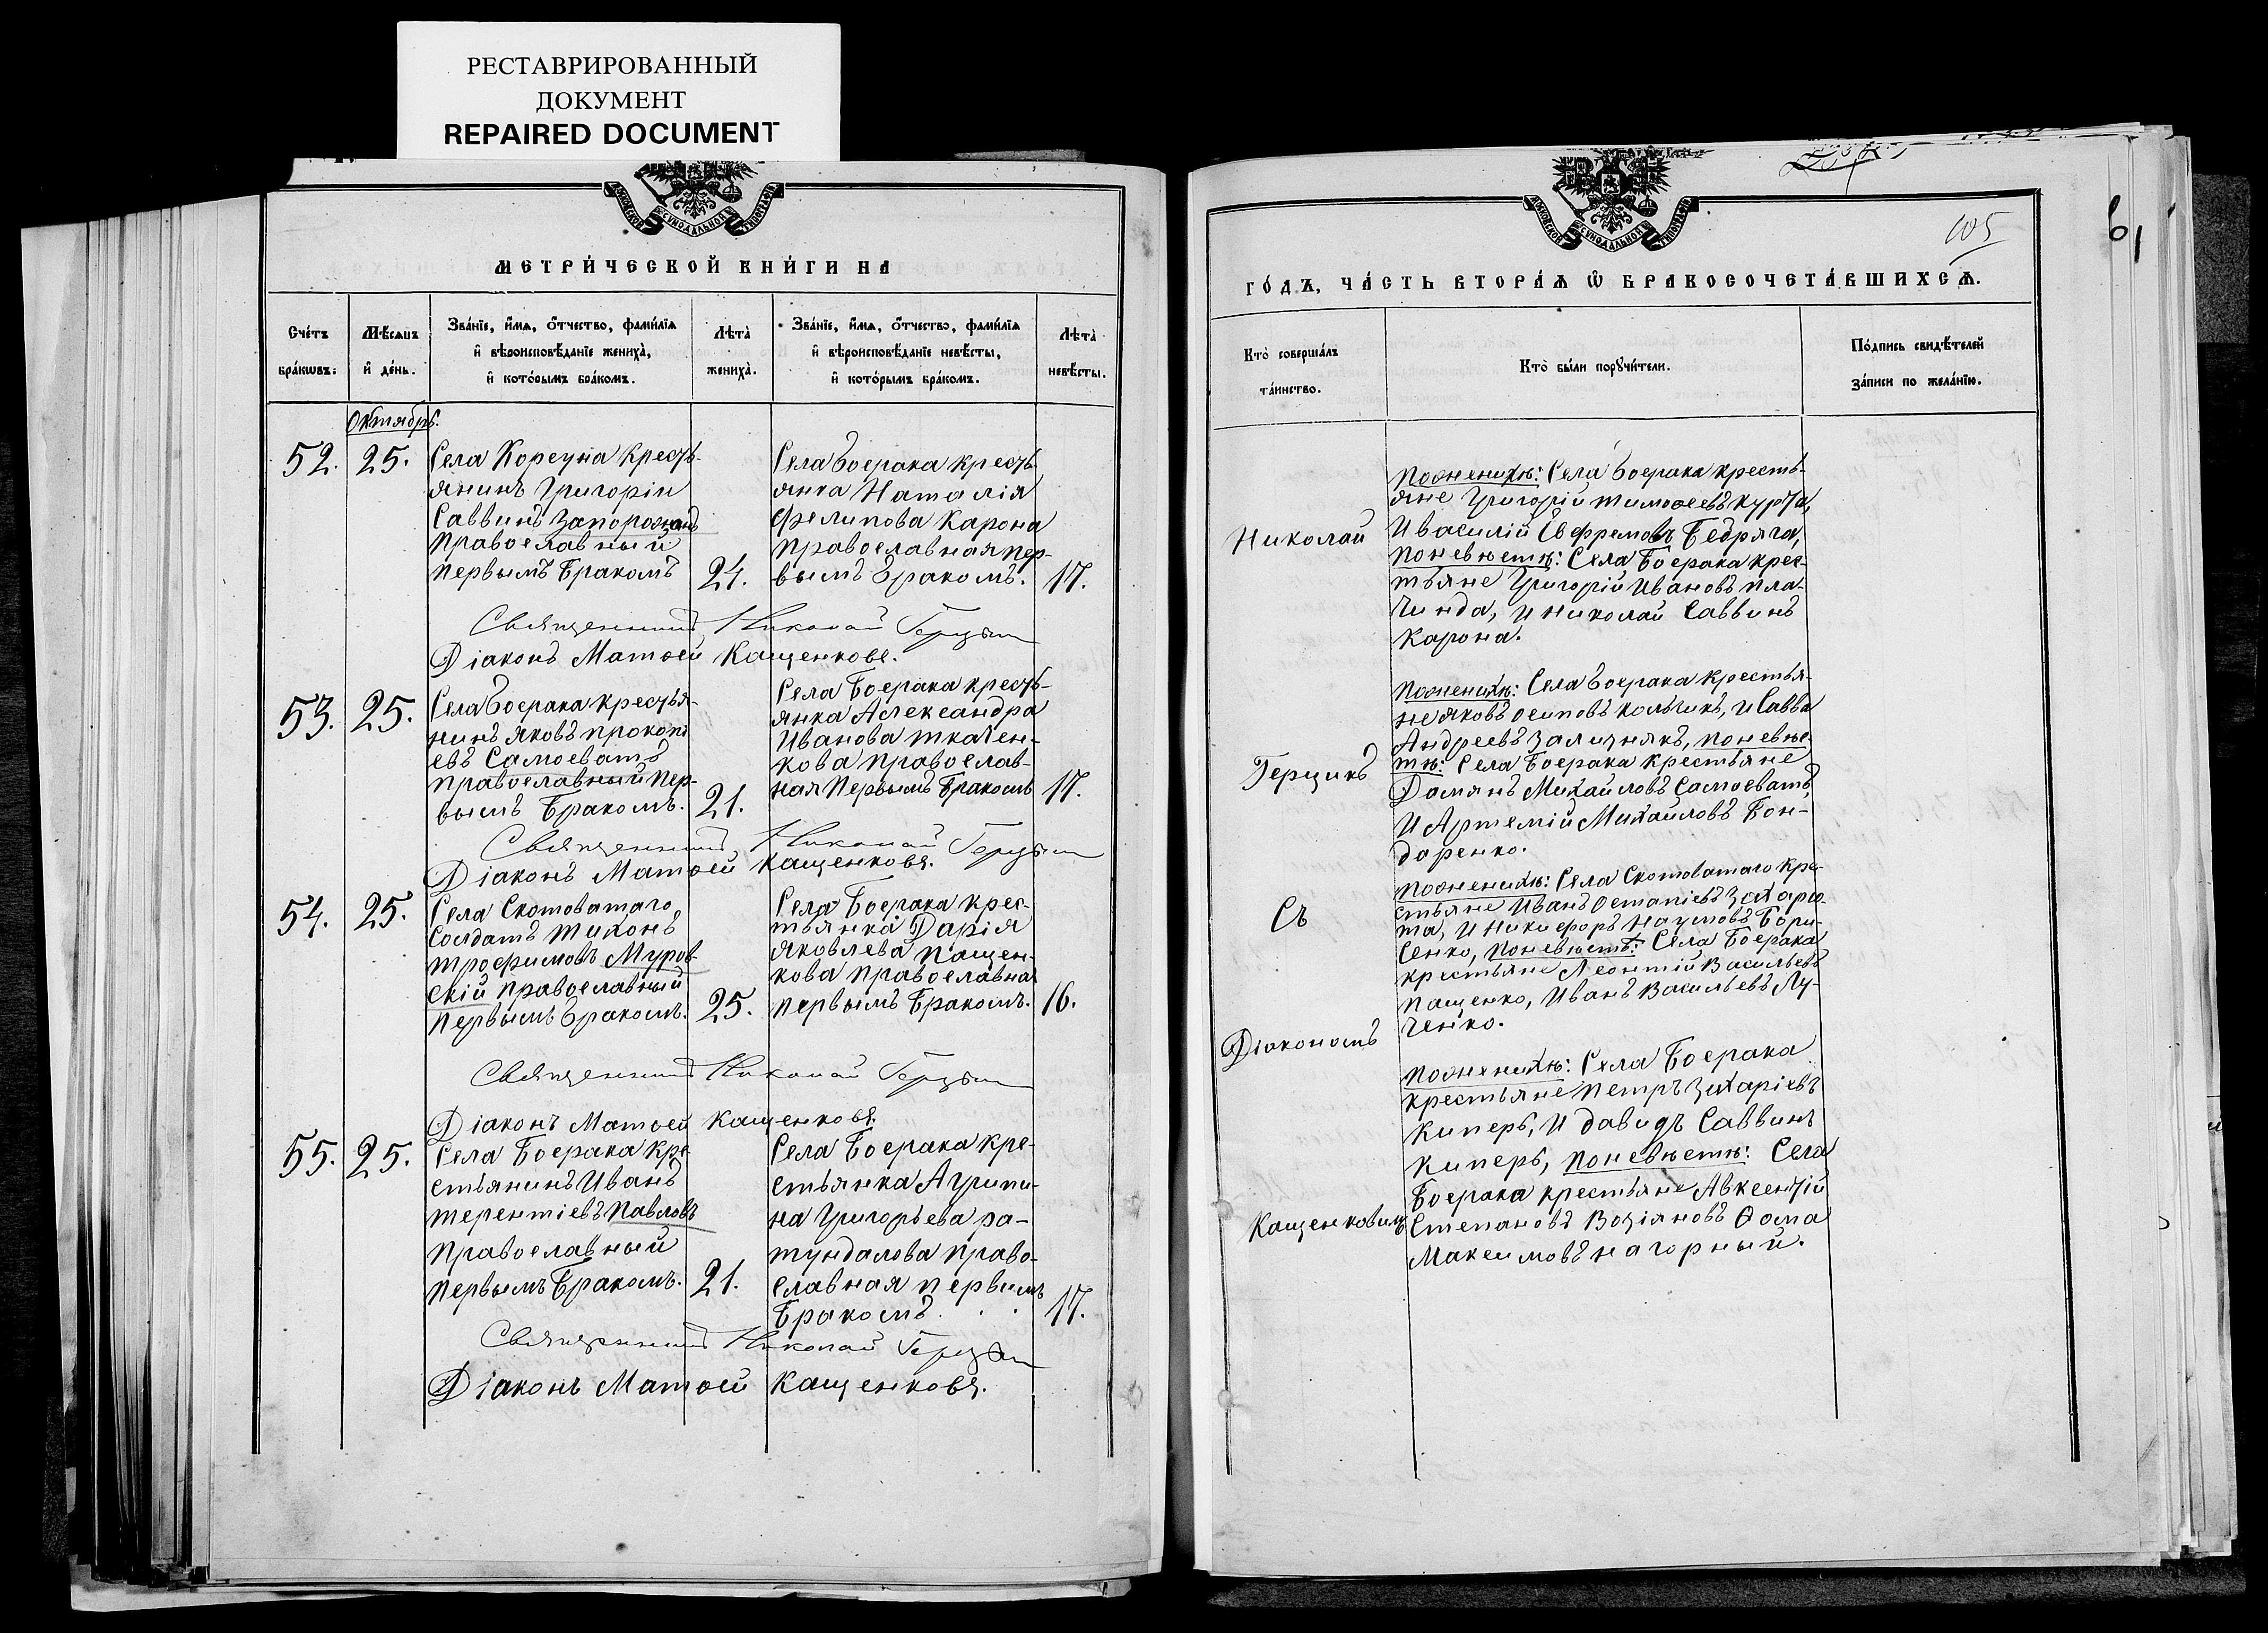 РЕСТАВРИРОВАННЫЙ
ДОКУМЕНТ
REPAIRED DOCUMENT
МЕТРИ́ЧЕСКОЙ КНИ́ГИ НА
Сче́тъ
бра́кѡвъ.
Мѣ́сяцъ
и҆ де́нь.
Зва́нїе, и҆́мѧ, ѻ҆́тчество, фами́лїѧ
и҆ вѣроисповѣ́данїе жениха̀,
и҆ кото́рымъ бра́комъ.
Лѣта̀
жениха̀.
Зва́нїе, и҆́мѧ, ѻ҆́тчество, фами́лїѧ
и҆ вѣроисповѣ́данїе невѣ́сты,
и҆ кото́рымъ бра́комъ.
Лѣта̀
невѣ́сты.
Октябрь.
52.
25.
Села Корсуна кресть-
янинъ Григорій
Саввинъ Запорожецъ
православный
первымъ бракомъ
24.
Села Боерака кресть-
янка Наталія
Филипова Карона
православная пер-
вымъ бракомъ.
17.
Священникъ Николай Герцыкъ
Діаконъ Матѳей Кащенковъ.
53.
25.
Села Боерака крестья-
нинъ Яковъ Прокопі
евъ Самоеватъ
православный пер-
вымъ бракомъ.
21.
Села Боерака кресть-
янка Александра
Иванова Ткачен-
кова православ-
ная первымъ бракомъ
17.
Священникъ Николай Герцыкъ
Діаконъ Матѳей Кащенковъ.
54.
25.
Села Скотоватаго
солдатъ Тихонъ
Трофимовъ Муров-
скій православный
первымъ бракомъ.
25.
Села Боерака крес-
тьянка Дарія
Яковлева Пащен-
кова православная
первымъ бракомъ.
16.
Священникъ Николай Герцыкъ
Діаконъ Матѳей Кащенковъ.
55.
25.
Села Боерака кре
стьянинъ Иванъ
Терентіевъ Павловъ
православный
первымъ бракомъ.
21.
Села Боерака кре-
стьянка Агрипи-
на Григорьева Ра-
тундалова право-
славная первымъ
бракомъ
17.
Священникъ Николай Герцыкъ
Діаконъ Матѳей Кащенковъ.
105
61
ГО́ДЪ, ЧА́СТЬ ВТОРА́Ѧ Ѽ БРАКОСОЧЕТА́ВШИХСѦ.
Кто̀ соверша́лъ
та́инство.
Кто̀ бы́ли порꙋчи́тели.
По́дпись свидѣ́телей
за́писи по жела́нїю.
Николай
Герцикъ
Съ
Діакономъ
Кащенковимъ
По женихѣ: Села Боерака кресть-
яне Григорій Тимоѳеевъ Курта,
и Василій Ефремовъ Бедряга,
по невѣстѣ: Села Боерака крес-
тьяне Григорій Ивановъ Пла-
чинда, и Николай Саввинъ
Карона.
По женихѣ: Села Боерака крестья-
не Яковъ Осиповъ Кольчикъ, и Савва
Андреевъ Зализнякъ, по невѣс-
тѣ: Села Боерака крестьяне
Дамянъ Михайловъ Самоеватъ,
и Артемій Михайловъ Бон-
даренко.
По женихѣ: Села Скотоватаго кре-
стьяне Иванъ Остапіевъ Захарю-
та, и Никифоръ Наумовъ Бори-
сенко, по невѣстѣ: Села Боерака
крестьяне Леонтій Васильевъ
Пащенко, Иванъ Васильевъ Лу-
ченко.
По женихѣ: Села Боерака
крестьяне Петръ Захаріевъ
Киперь, и Давидъ Саввинъ
Киперь, по невѣстѣ: Села
Боерака крестьяне Авксентій
Степановъ Возіяновъ Ѳома
Максимовъ Нагорный.